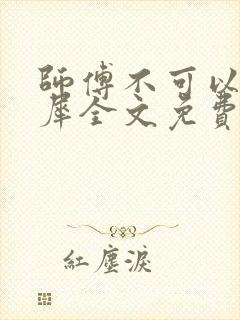 師傅不可以
犀全文免費
紅塵淚